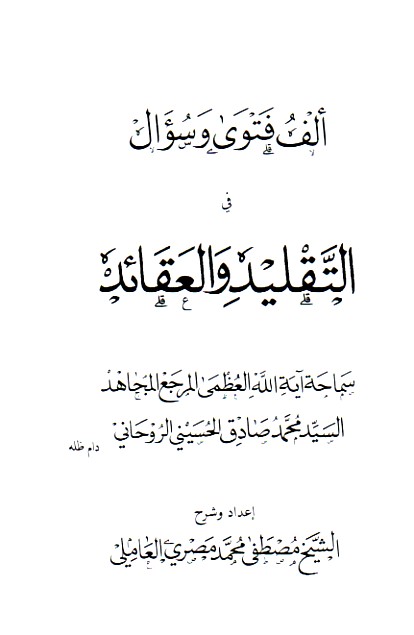 ألف فتوى وسؤال
في
التقليد والعقائد
سماحة آية الله العظمى المرجع المجاهد
السيد محمد صادق الحسيني الروحاني دام ظله
إعداد وشرح
الشيخ مصطفى محمد مصري العاملي